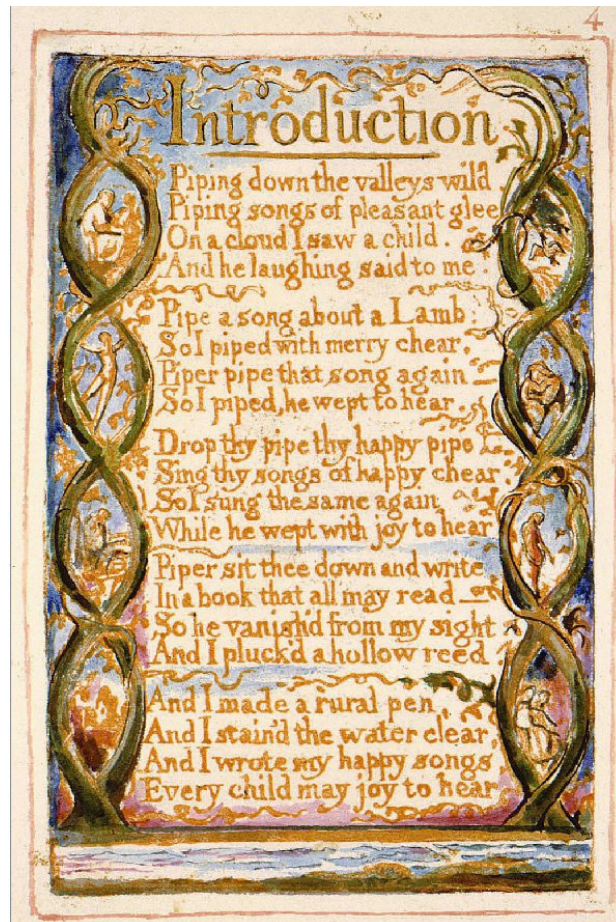 4
Introduction
Piping down the valleys wild
Piping songs of pleasant glee
On a cloud I saw a child.
And he laughing said to me.
Pipe a song about a Lamb:
So I piped with merry chear,
Piper pipe that song again—
So I piped, he wept to hear.
Drop thy pipe thy happy pipe
Sing thy songs of happy chear
So I sung the same again
While he wept with joy to hear
Piper sit thee down and write
In a book that all may read—
So he vanish'd from my sight
And I pluck'd a hollow reed.
And I made a rural pen,
And I stain'd the water clear,
And I wrote my happy songs
Every child may joy to hear